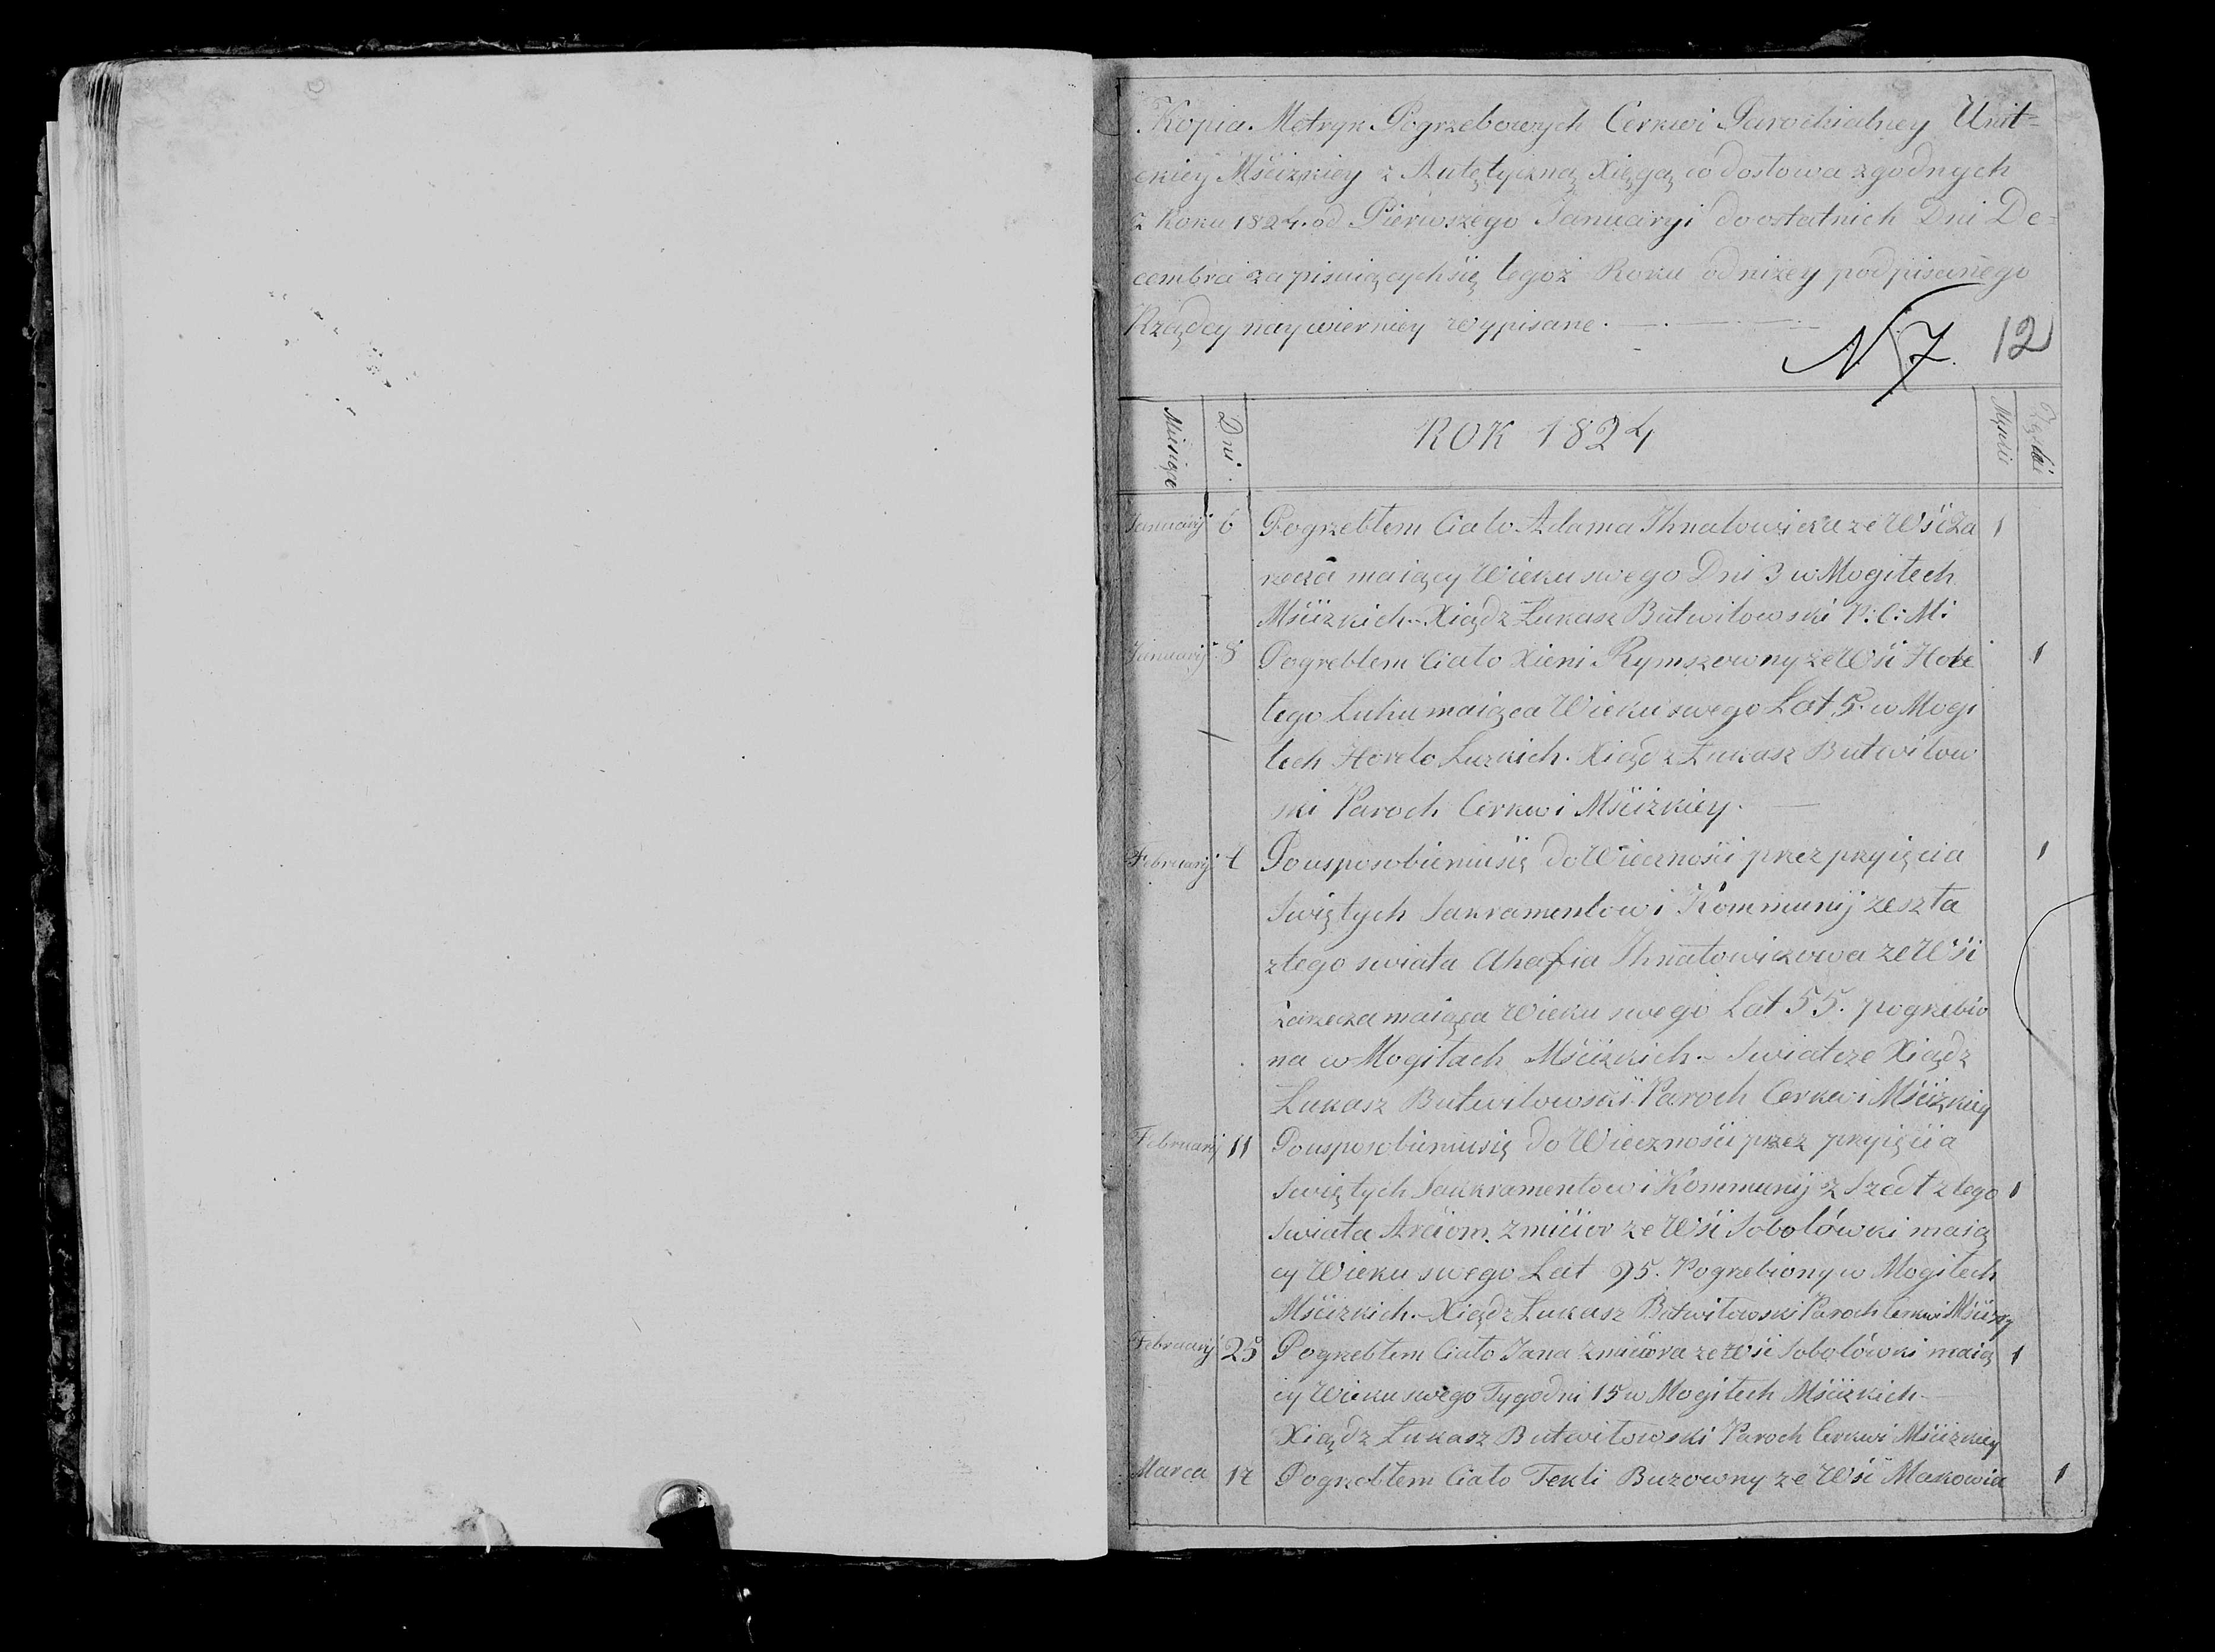 Kopia Metryk Pogrzebowych Cerkwi Parochialney Unit-
ckiey Mścizkiey z Autętyczną Xięgą co dosłowa zgodnych
z Roku 1824. od Pierwszego Januaryi do ostatnich Dni De=
cembra zapisuiącychsię tegoż Roku od niżey podpisanego
Rządcy naywierniey wypisane.
N 7. 12
Miesiące Dni. ROK 1824 Męskie
Januarij 6 Pogrzebłem Ciało Adama Ihnatowicza ze Wśi Za 1
rzecza maiący Wieku swego Dni 3 w Mogiłech
Mścizkich.- Xiądz Łukasz Butwiłowski P: C: M:
Januarij 8 Pogrebłem Ciało Xieni Rymszowny ze Wśi Hore 1
łego Luhu maiąca Wieku swego Lat 5. w Mogi
łech Horeło Luzkich. Xiądz Łukasz Butwiłow
ski Paroch Cerkwi Mścizkiey.
Februarij Po usposobieniusię do Wiecznośći przez pryięcia 1
Swiętych Sakramentow i Kommunij zeszła
z tego swiata Ahafia Ihnatowiczowa ze Wśi
Zarzecza maiąca Wieku swego Lat 55. pogrzebio
na w Mogiłach Mścizkich.- Swiatcze Xiądz
Łukasz Butwiłowski Paroch Cerkwi Mścizkiey
Februarij 11 Po usposobieniusię do Wiecznośći przez pryięcia
Swiętych Sakkramentow i Kommunij z Szedł z tego 1
Swiata Arciom Zmicior ze Wśi Sobolówki maią
cy Wieku swego Lat 95. Pogrzebiony w Mogiłech
Mścizkich.- Xiądz Łukasz Butwiłowski Paroch Cerkwi
Februarij 25 Pogrzebłem Ciało Jana Zmiciora ze Wśi Sobolówki maią 1
cy Wieku swego Tygodni 15 w Mogiłech Mścizkich-
Xiądz Łukasz Butwiłowski Paroch Cerkwi Mścizkiey
Marca Pogrzebłem Ciało Tekli Buzowny ze Wśi Makowia 1